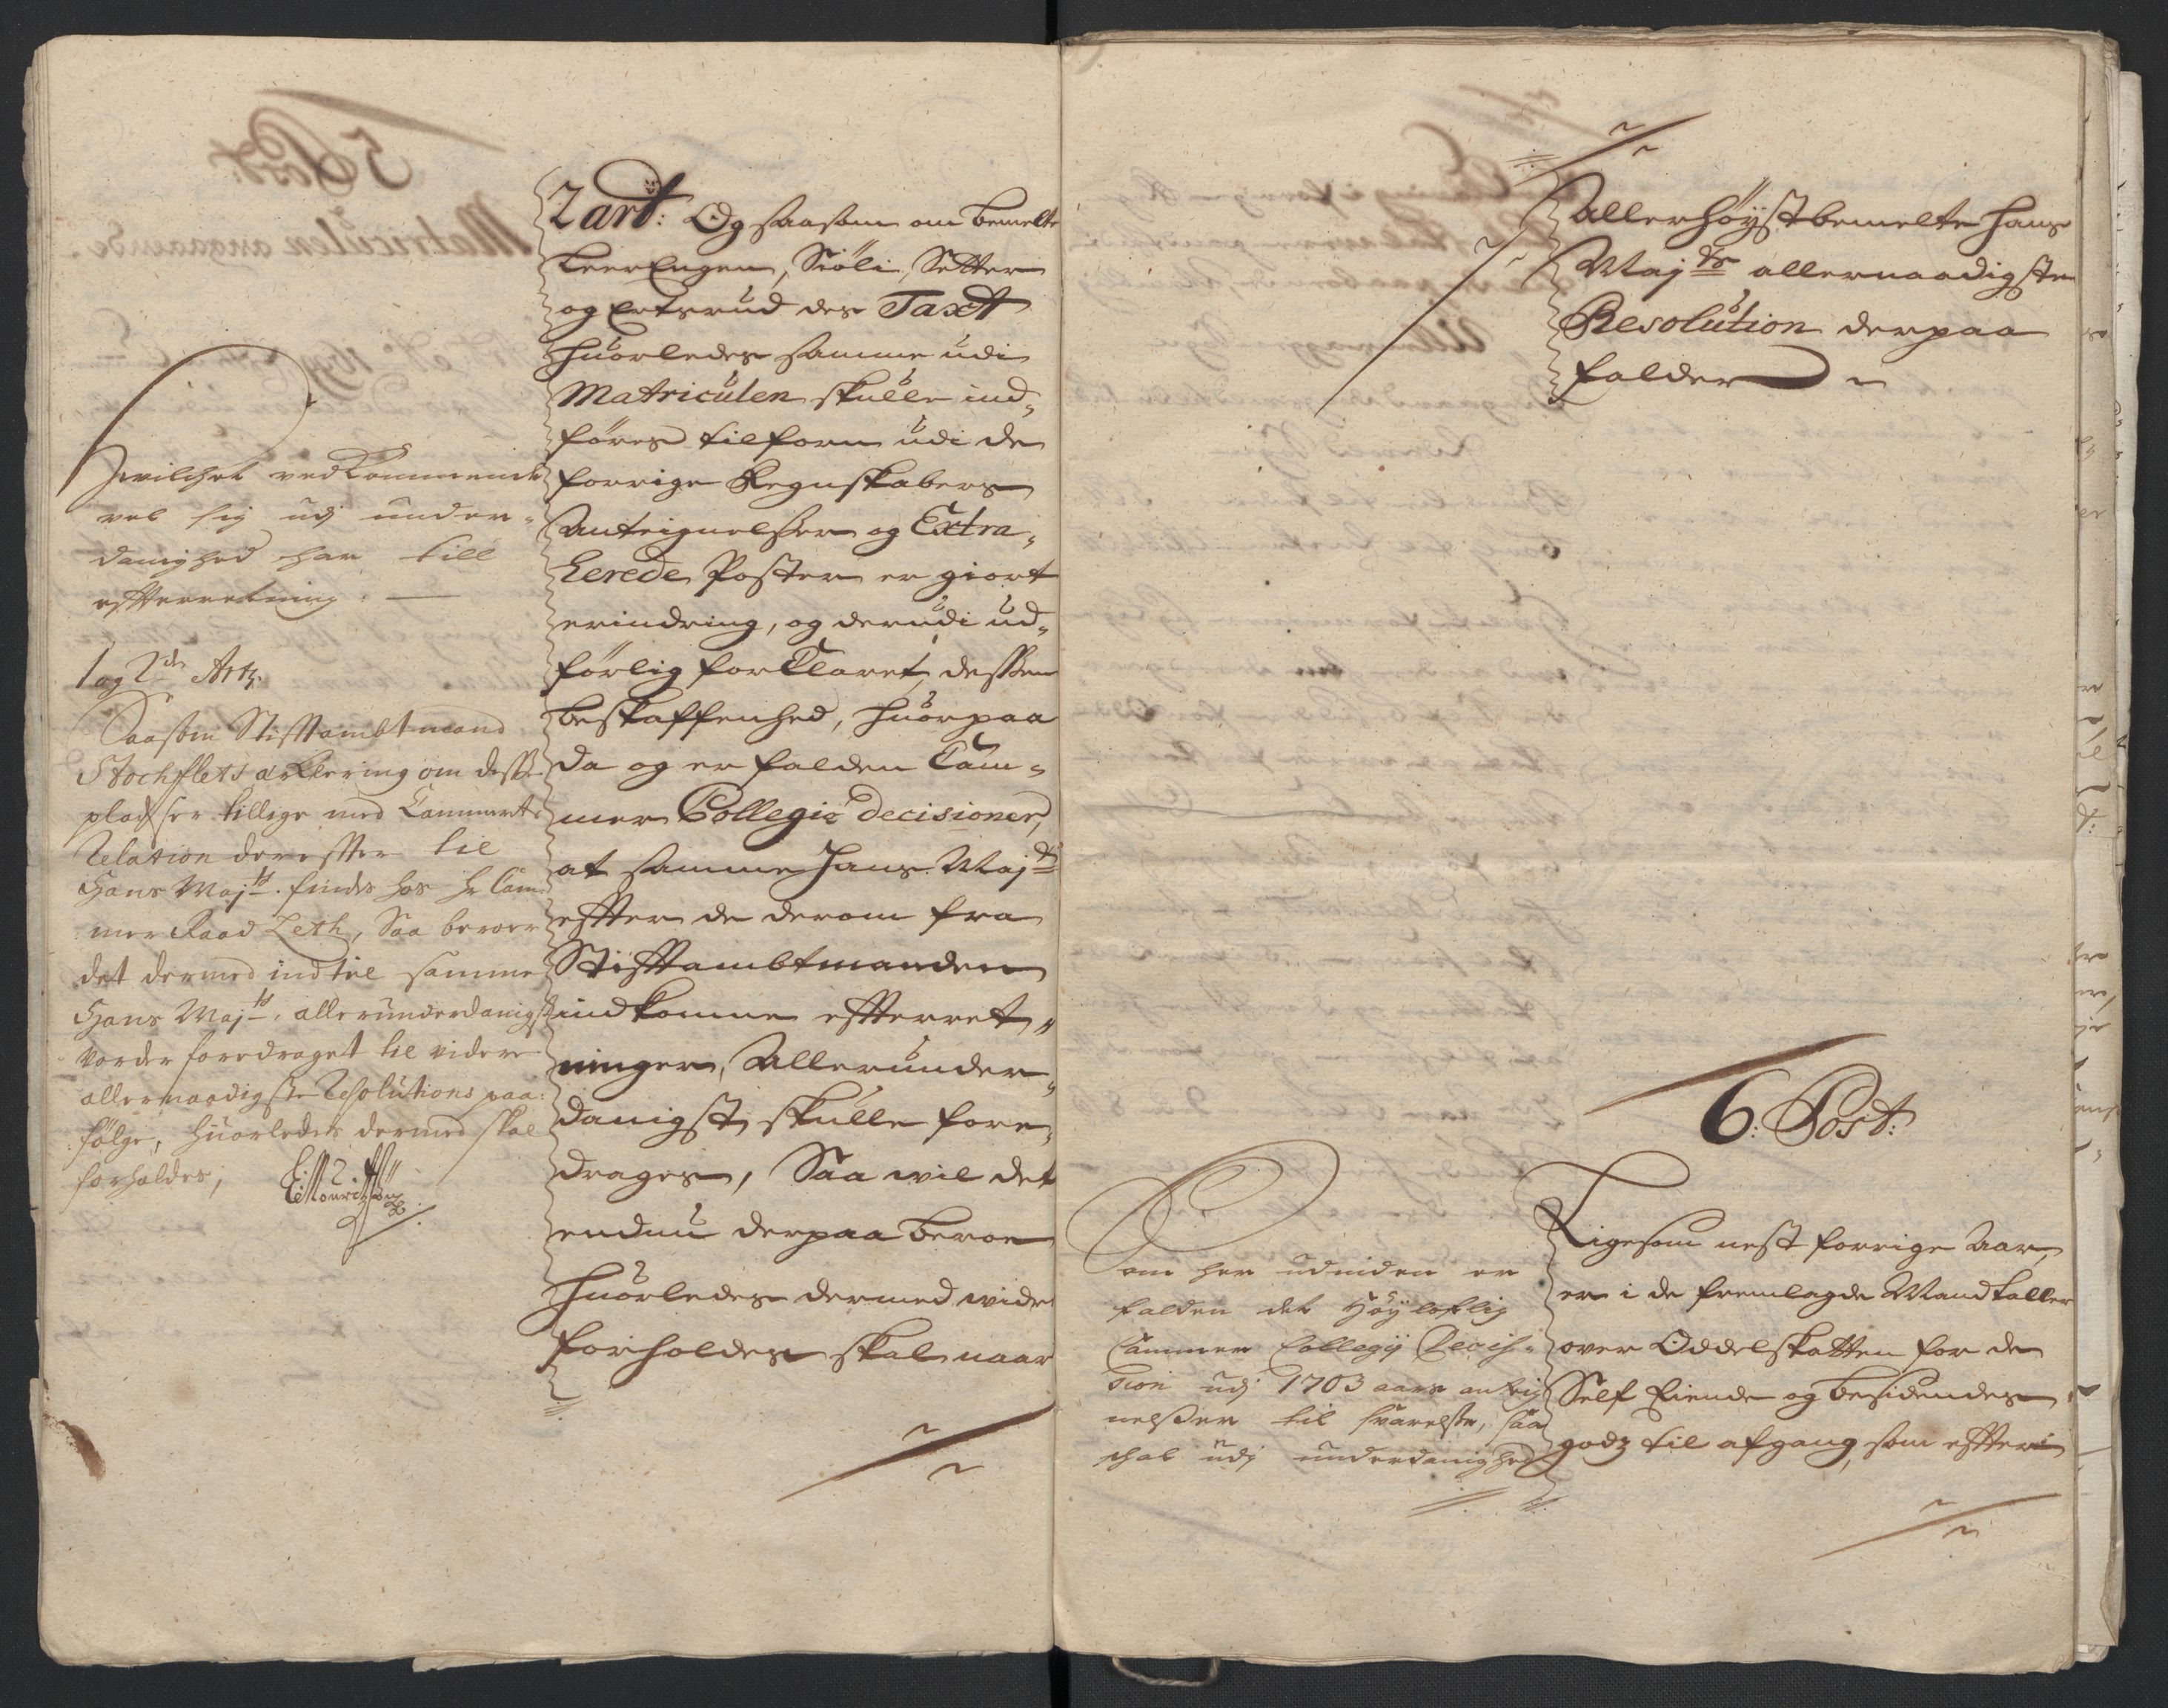 Hvilchet vedkommende
vel sig udj under-
danighed har till
effterretning.
1 og 2de Art:
Saasom Stifftambtmand
Stochflets erklering om disse
pladser tillige med Cammerets
Relation dereffter til
Hans Majts. findes hos Hr Cam-
mer Raad Leth, Saa beroer
det dermed indtil samme
Hans Majts. allerunderdanigst
vorder foredraget til videre
allernaadigste Resolutions paa-
følge, huorledes dermed skal
forholdes,
2 art: Og saasom om bemelte
LeerEngen, Siöli, Setter
og Ertsrud des Taxt
huorledes samme udi
Matriculen skulle ind-
føres tilforn udi de
forrige Regnskabers
Anteignelser og Extra-
herede Poster er giort
erindring, og derudi ud-
førlig forklaret dessen
beskaffenhed, huorpaa
da og er falden Cam-
mer Collegii Decisioner,
at samme Hans Majts
effter de derom fra
Stifftambtmanden
indkomne effterret-
ninger, Allerunder-
danigst skulle fore-
drages, Saa vil det
endnu derpaa beroe
huorledes dermed vider
forholdes skal naar
Allerhøystbemelte Hans
Majts allernaadigste
Resolution derpaa
falder
6: Post:
Som her udinden er
falden det Høyloflig
Cammer Collegij Decis-
sion udj 1703 aars anteig
nelser til svarelse, saa
schal udj underdanighed
Ligesom nest forrige Aar,
er i de fremlagde Mandtaller
over Oddelskatten for de
Self Eiende og besidendes
godz til afgang, som effter